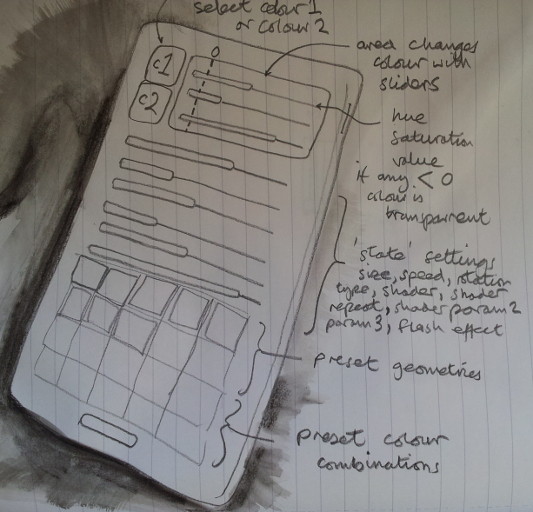 select colour 1
or colour 2
c1
c2
0
area changes
colour with
sliders
hue
saturation
value
if any < 0
colour is
transparrent
'state' settings
size, speed, rotation
type, shader, shader
repeat, shader param 2
param 3, flash effect
preset geometries
preset colour
combinations